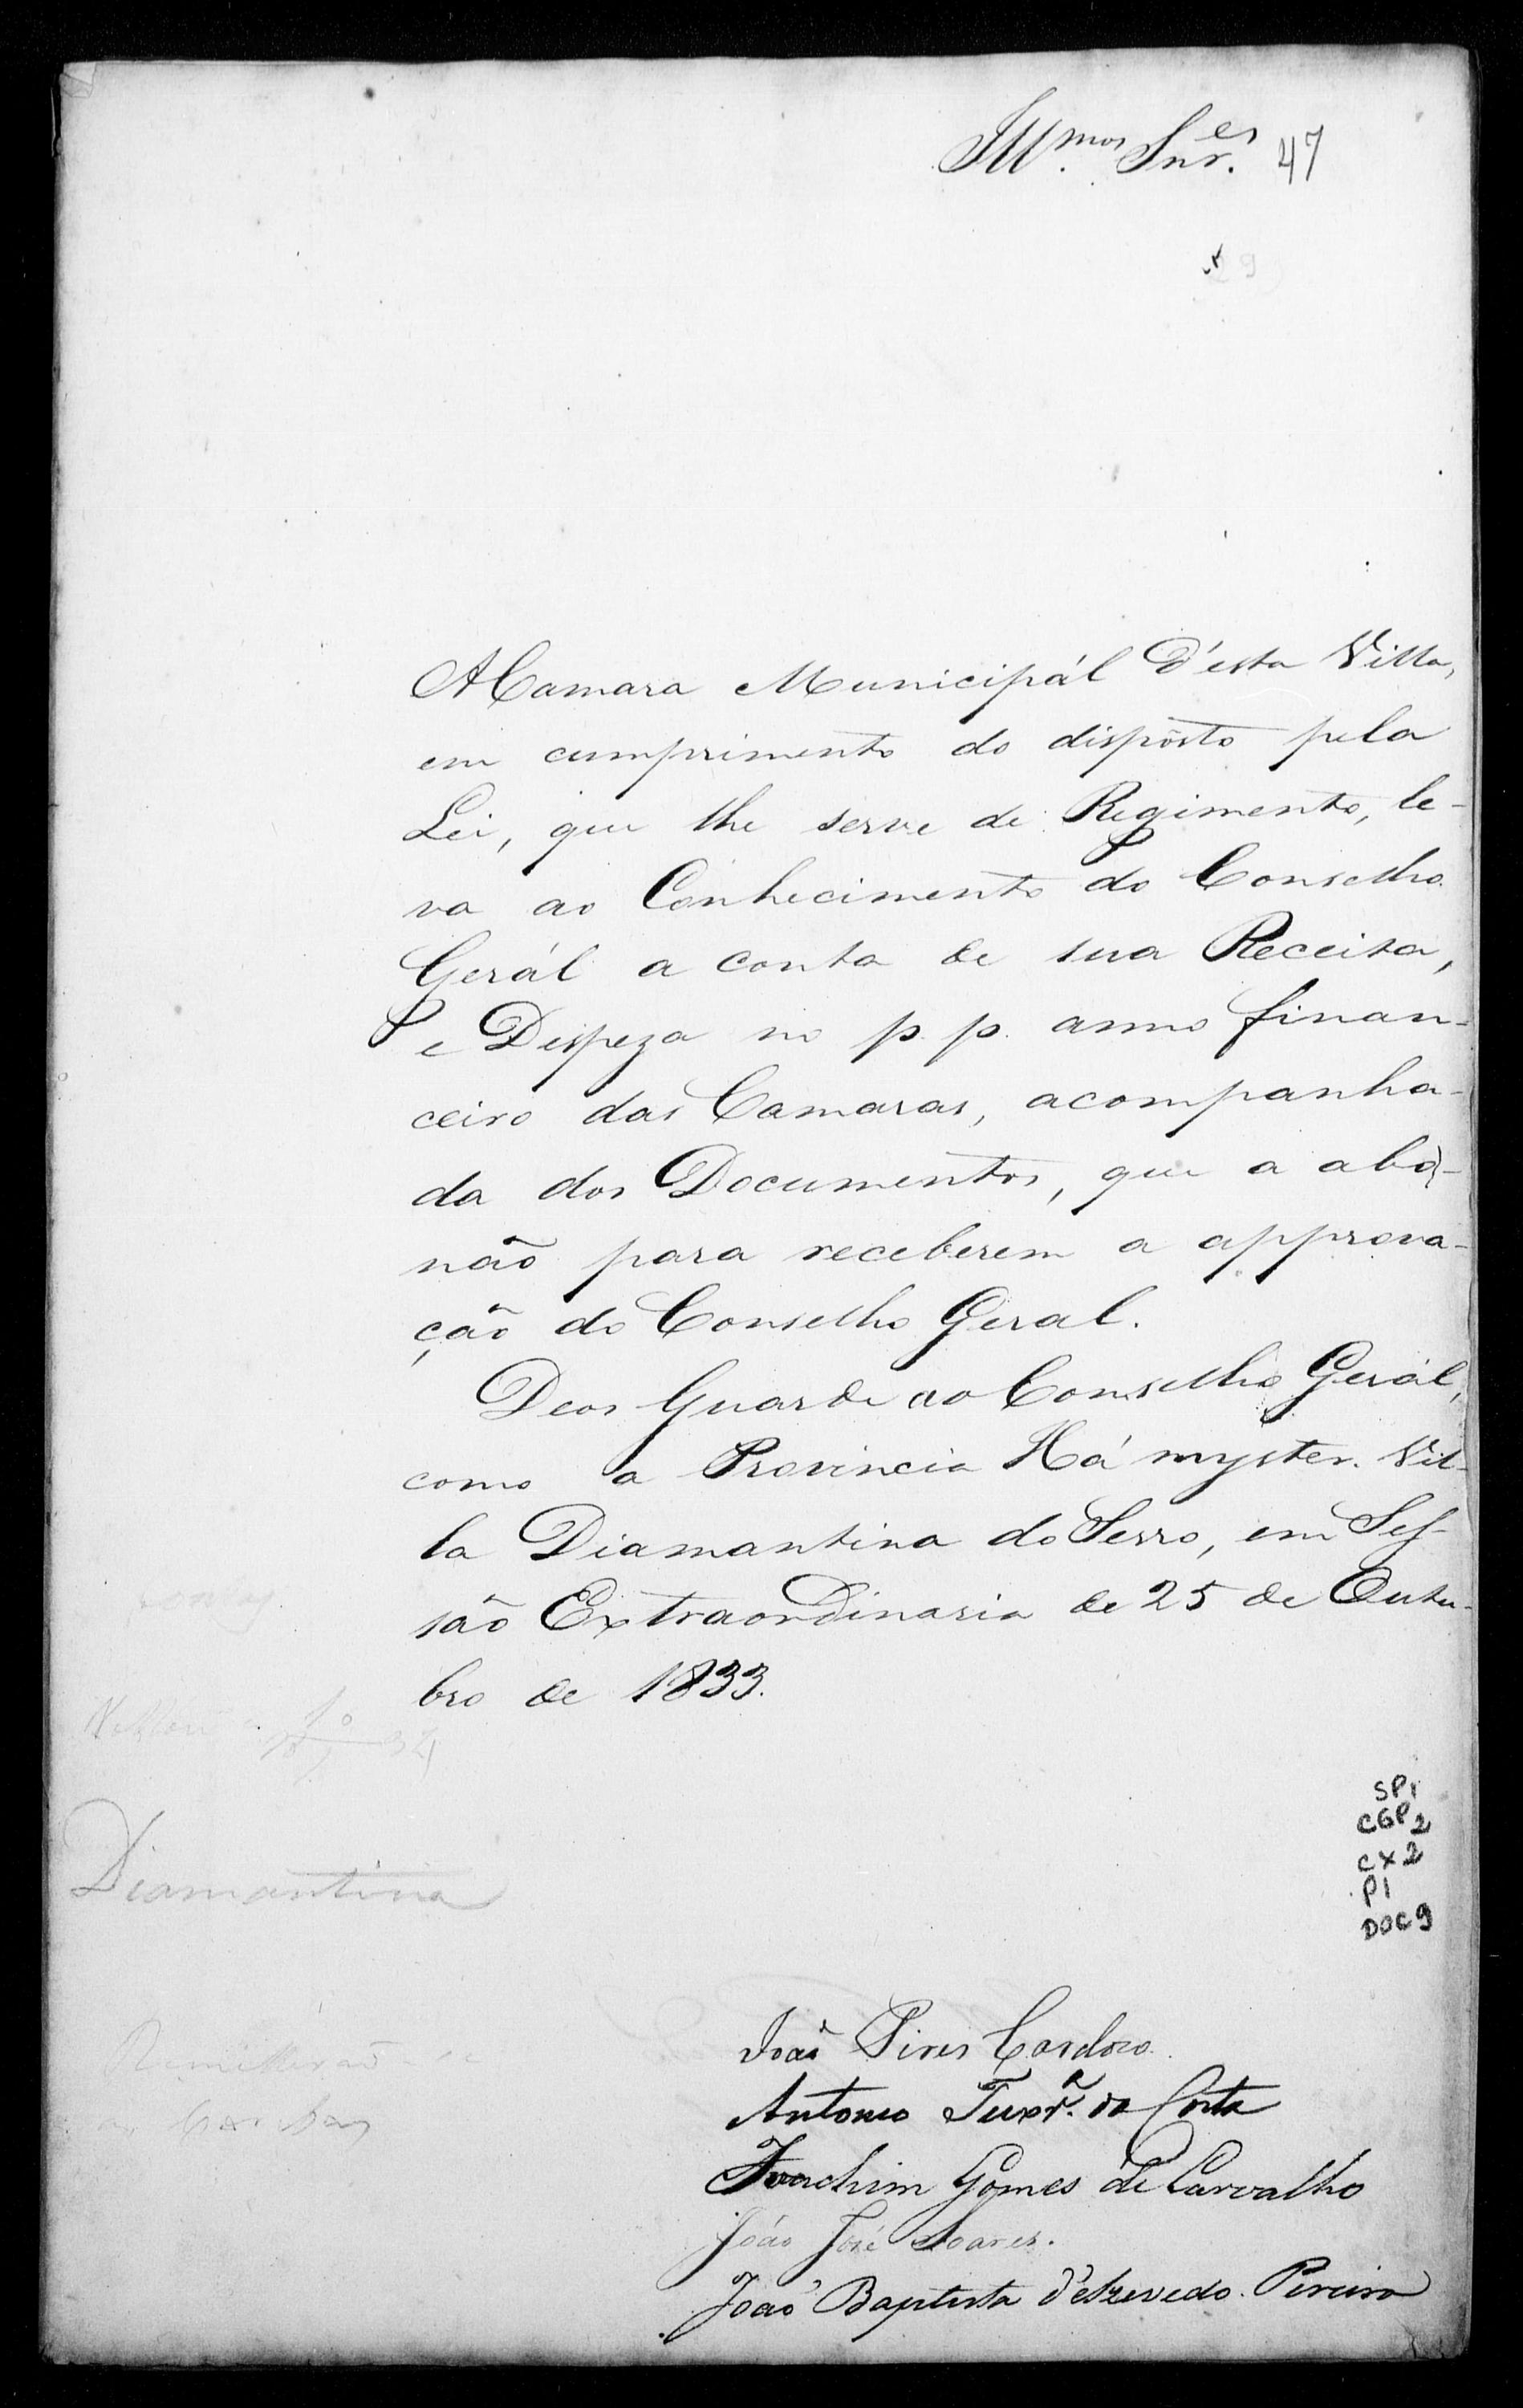 Illmos. Snres. 47
A Camara Municipál d'esta Villa,
em cumprimento do dispôsto pela
Lei, que lhe serve de Regimento, le-
va ao Conhecimento do Conselho
Gerál a conta de sua Receita,
e Despeza no p. p. anno finan-
ceiro das Camaras, acompanha-
da dos Documentos, que a abo-
não para receberem a approva-
ção do Conselho Geral.
Deos Guarde ao Conselho Gerál,
como a Provincia Há myster. Vil-
la Diamantina do Serro, em Ses-
são Extraordinaria de 25 de Outu-
bro de 1833.
Diamantina
SP1
CGP2
CX2
P1
DOC9
João Pires Cardoso.
Antonio Teixrª. da Costa
Joachim Gomes de Carvalho
João José Soares.
João Baptista d'Azevedo Pereira